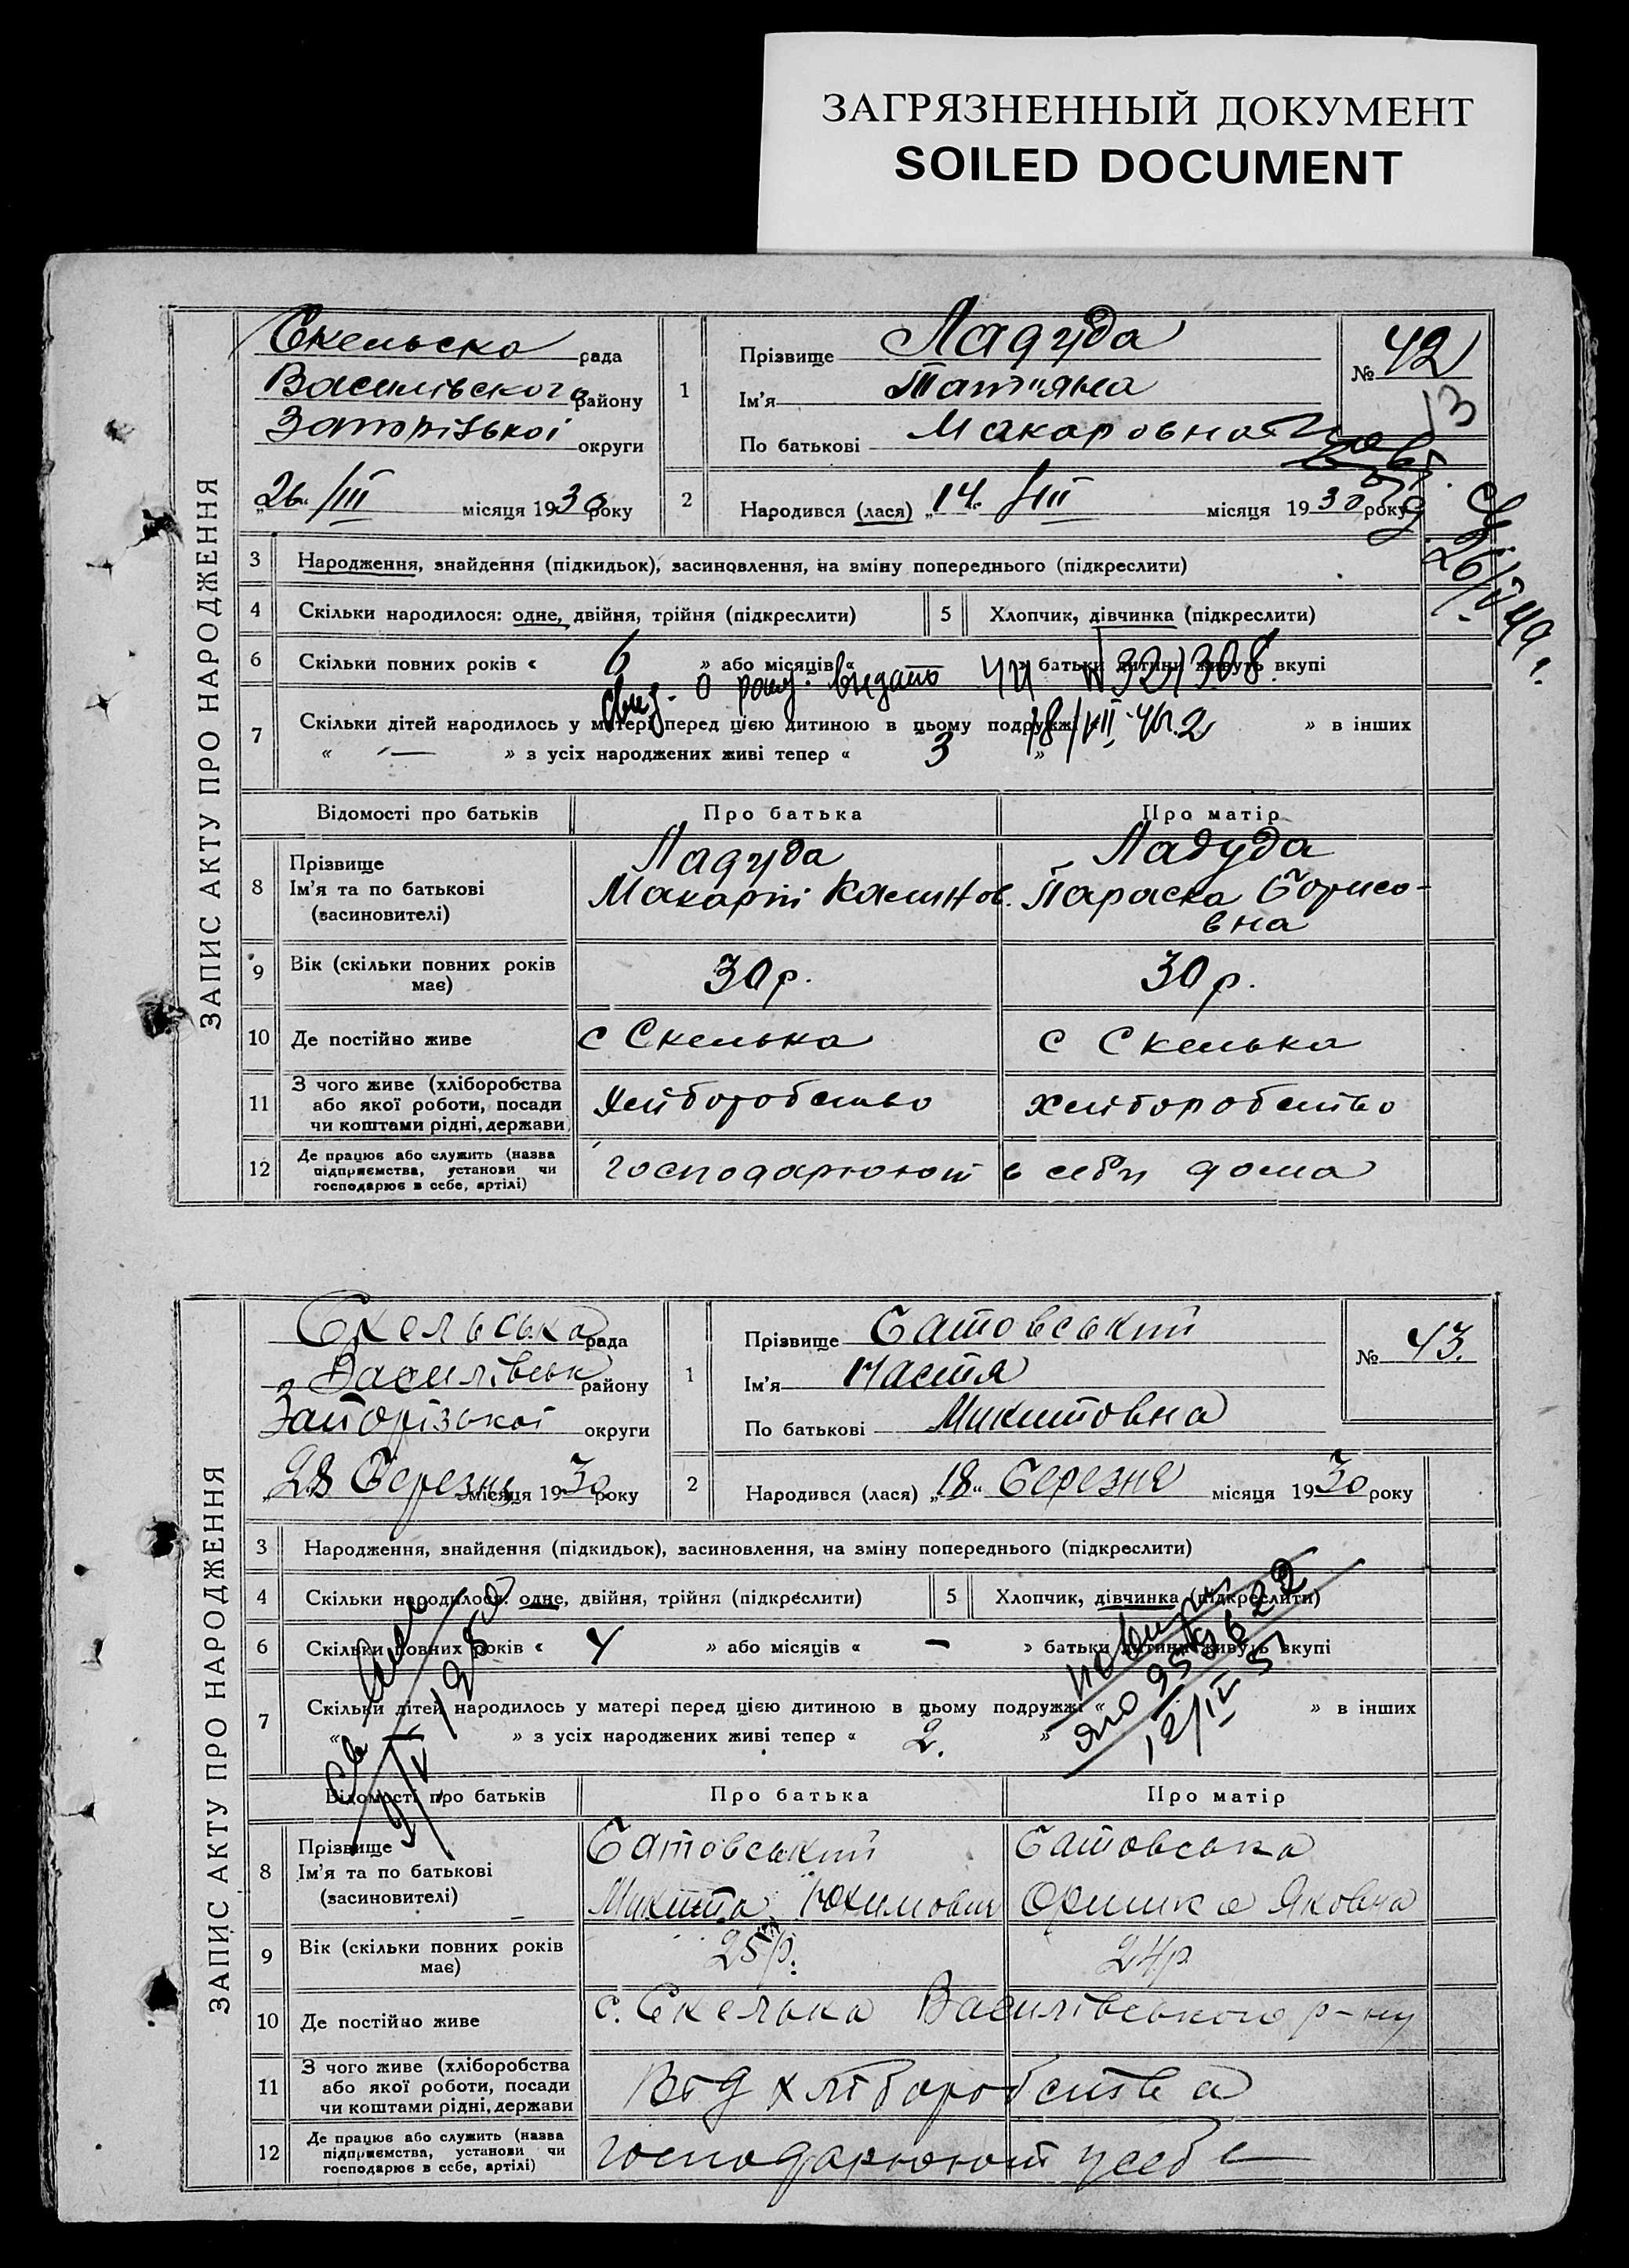 ЗАГРЯЗНЕННЫЙ ДОКУМЕНТ
SOILED DOCUMENT
ЗАПИС АКТУ ПРО НАРОДЖЕННЯ
Скельска рада
Василівского району
Запорізької округи
„26“ /III місяця 1930 року
1 Прізвище Ладуда
Ім'я Тат'яна
По батькові Макаровна
№ 42
13
2 Народився (лася) „14“ /III місяця 1930 року
3 Народження, знайдення (підкидьок), засиновлення, на зміну попереднього (підкреслити)
4 Скільки народилося: одне, двійня, трійня (підкреслити) 5 Хлопчик, дівчинка (підкреслити)
6 Скільки повних років « 6 » або місяців « — » батьки дитини живуть вкупі
видано № 321308
7 Скільки дітей народилось у матері перед цією дитиною в цьому подружжі « 2 » в інших
« — » з усіх народжених живі тепер « 3 »
Відомості про батьків Про батька Про матір
8 Прізвище Ладуда Ладуда
Ім'я та по батькові Макарій Калинов. Параска Борисо-
(засиновителі) вна
9 Вік (скільки повних років має) 30 р. 30 р.
10 Де постійно живе с Скелька с Скелька
11 З чого живе (хліборобства або якої роботи, посади чи коштами рідні, держави) хліборобство хліборобство
12 Де працює або служить (назва підприємства, установи чи господарює в себе, артілі) господарюют в себя дома
ЗАПИС АКТУ ПРО НАРОДЖЕННЯ
Скельська рада
Василівськ району
Запорізької округи
„28“ Березня місяця 1930 року
1 Прізвище Батовський
Ім'я Настя
По батькові Микитовна
№ 43.
2 Народився (лася) „18“ Березня місяця 1930 року
3 Народження, знайдення (підкидьок), засиновлення, на зміну попереднього (підкреслити)
4 Скільки народилося: одне, двійня, трійня (підкреслити) 5 Хлопчик, дівчинка (підкреслити)
6 Скільки повних років « 4 » або місяців « — » батьки дитини живуть вкупі
7 Скільки дітей народилось у матері перед цією дитиною в цьому подружжі « » в інших
« » з усіх народжених живі тепер « 2. »
Відомості про батьків Про батька Про матір
8 Прізвище Батовський Батовська
Ім'я та по батькові Микита Юхимович Оришка Яковна
(засиновителі)
9 Вік (скільки повних років має) 25 р. 24 р
10 Де постійно живе с. Скелька Василівського р-ну
11 З чого живе (хліборобства або якої роботи, посади чи коштами рідні, держави Від хліборобства
12 Де працює або служить (назва підприємства, установи чи господарює в себе, артілі) господарюют у себе